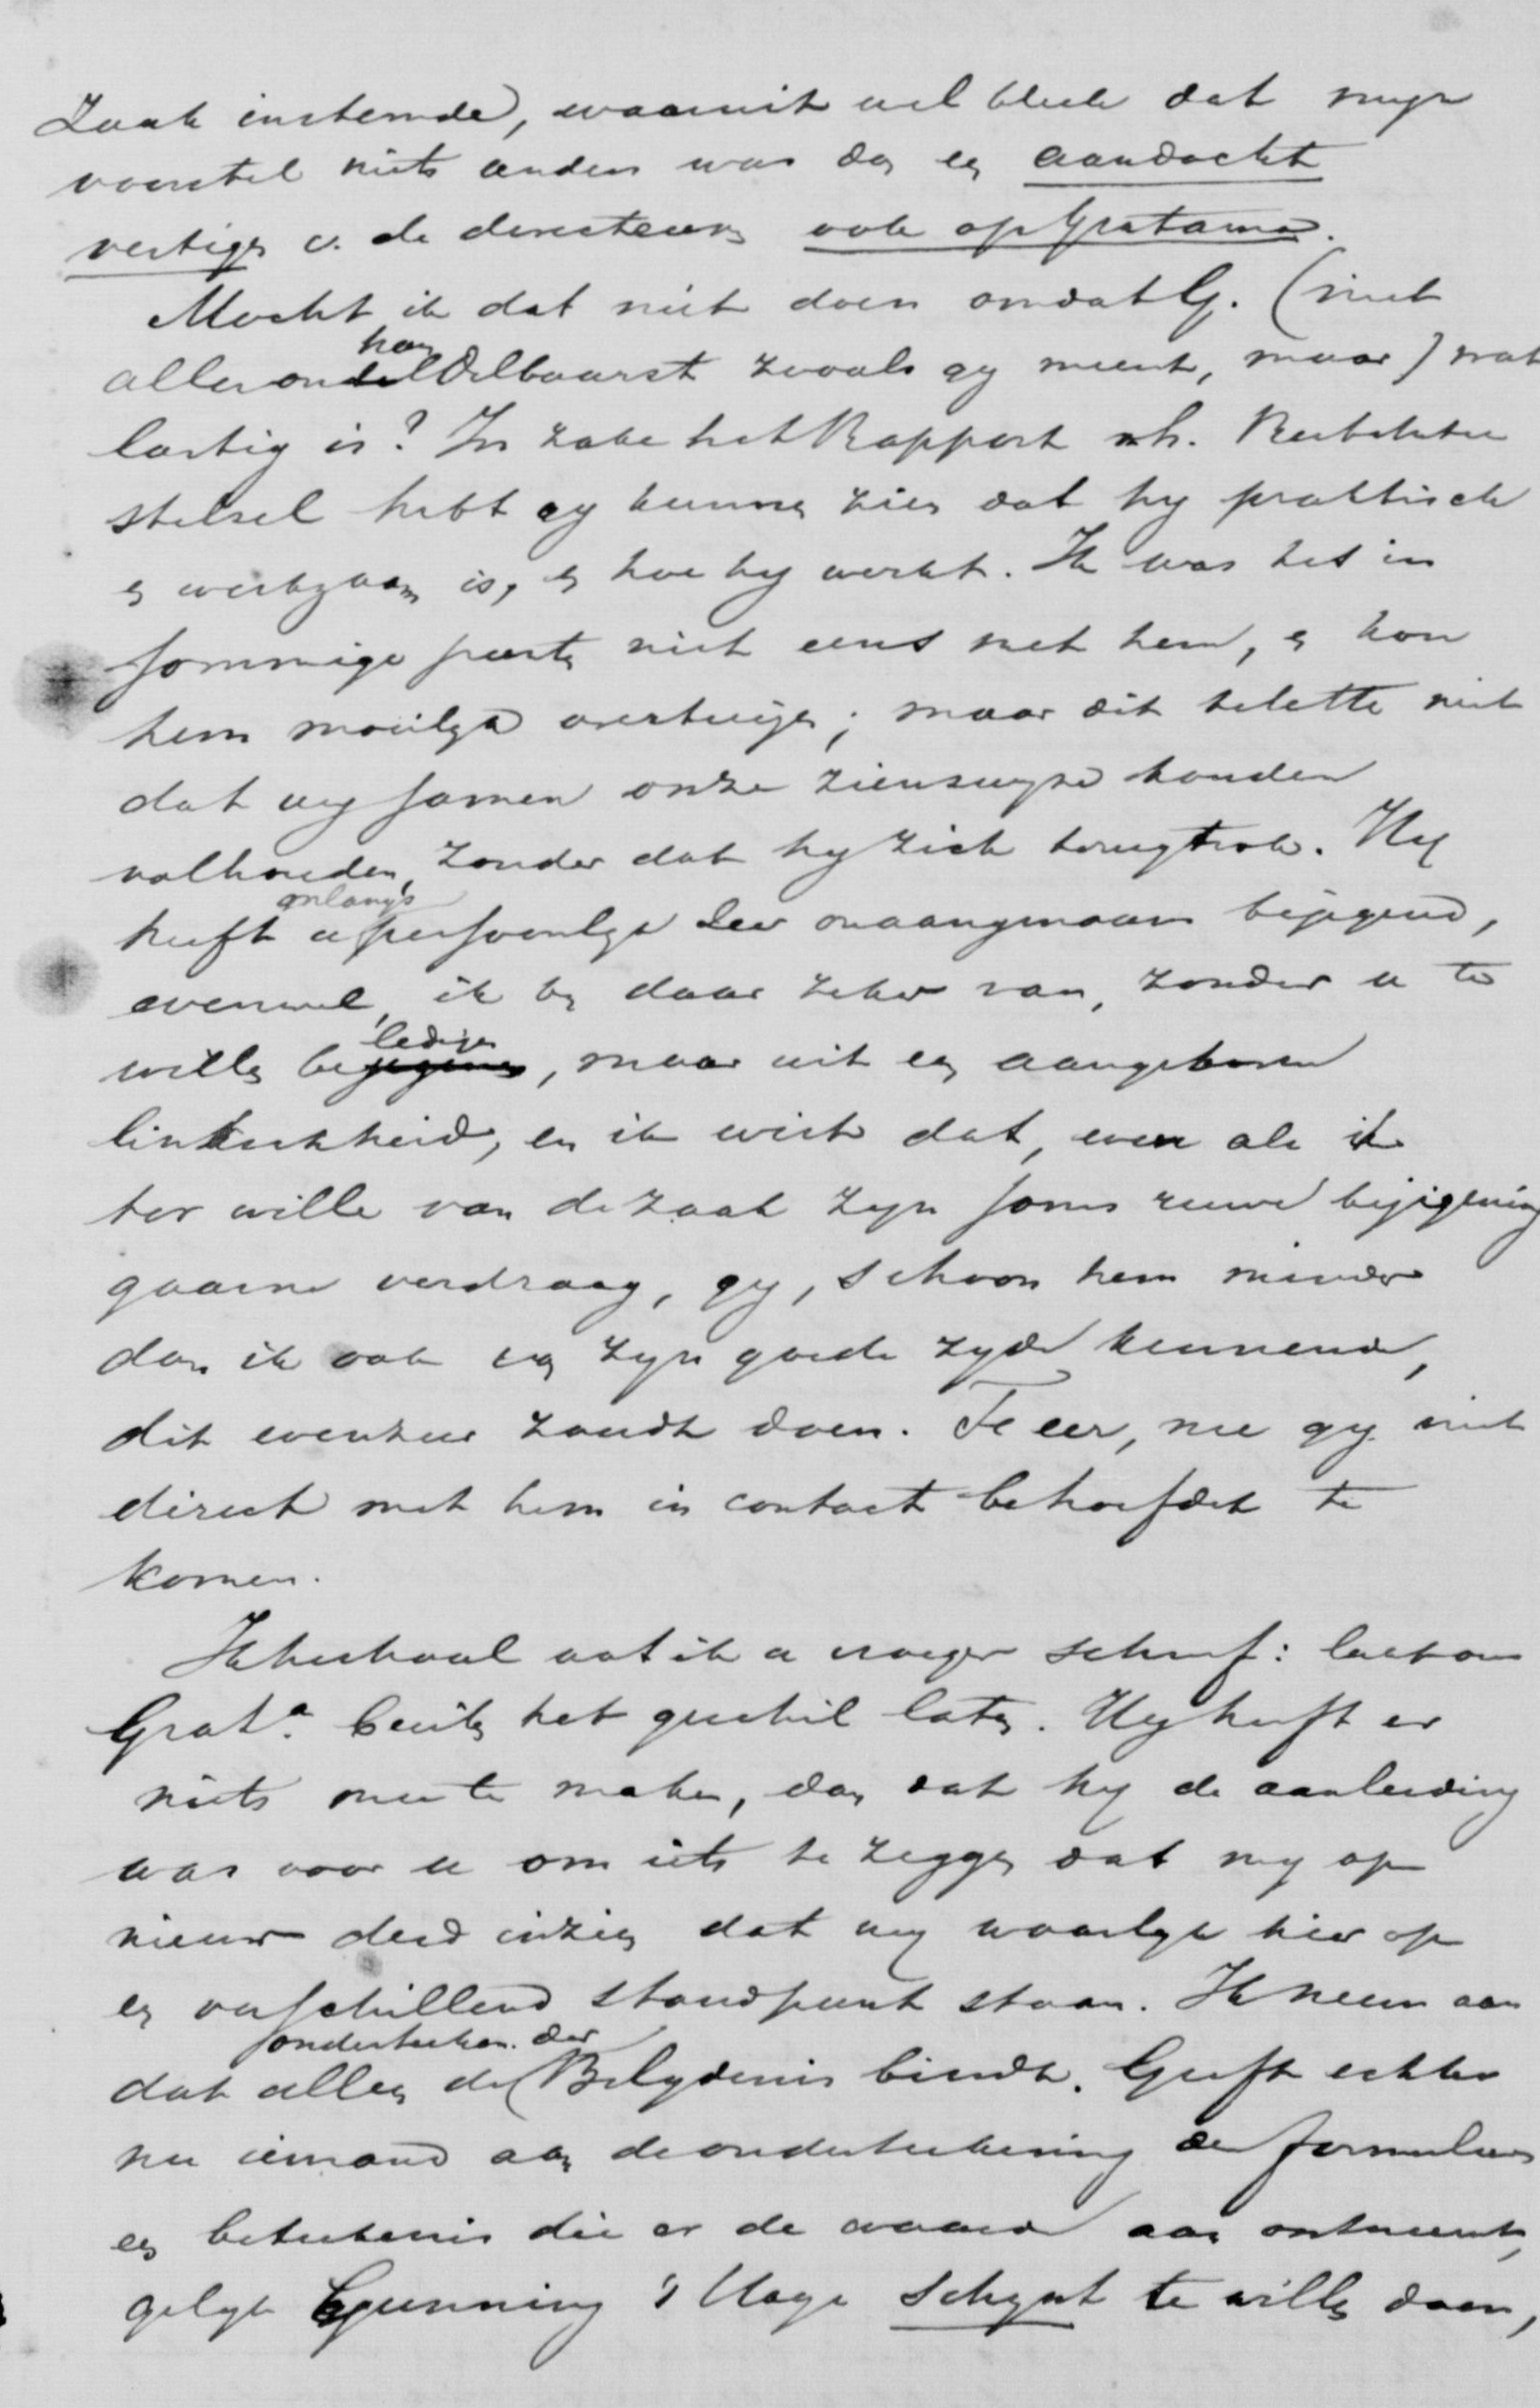 zaak instemde), waaruit wel bleek dat mijn
voorstel niets anders was dan een aandacht
vestigen v. de directeuren ook op Gratama.
Mocht ik dat niet doen omdat G. (niet
han
alleronhandelbaarst zooals gy meent, maar) wat
lastig is? In zake het Rapport
stelsel hebt gy kunnen zien dat hy praktisch
en werkzaam is, en hoe hy werkt. Ik was het in
sommige punten niet eens met hem, en kon
hem moeilyk overtuigen; maar dit belette niet
dat wy samen onze zienswyze konden
volhouden, zonder dat hy zich terugtrok. Hy
onlangs
heeft u persoonlyk zeer onaangenaam bejegend,
evenwel, ik ben daar zeker van, zonder u te
ledigen
willen be, maar uit een aangeboren
linkschheid, en ik wist dat, even als ik
ter wille van de zaak zyn soms ruwe bejegening
gaarne verdraag, gy, schoon hem minder
dan ik ook en zyn goede zyde kennend,
dit evenzeer zoudt doen. Te eer, nu gy niet
direct met hem in contact behoefdet te
komen.
Ik herhaal wat ik u vroeger schreef: laat ons
Grat.a buiten het geschil laten. Hy heeft er
niets mee te maken, dan dat hy de aanleiding
was voor u om iets te zeggen dat my op
nieuw deed inzien dat wy waarlyk hier op
een verschillend standpunt staan. Ik neem aan
onderteeken. der
dat allen de Belydenis bindt. Geeft echter
nu iemand aan de onderteekening der formulieren
een beteekenis die er de waarde aan ontneemt,
gelyk Gunning 's Hage schynt te willen doen,